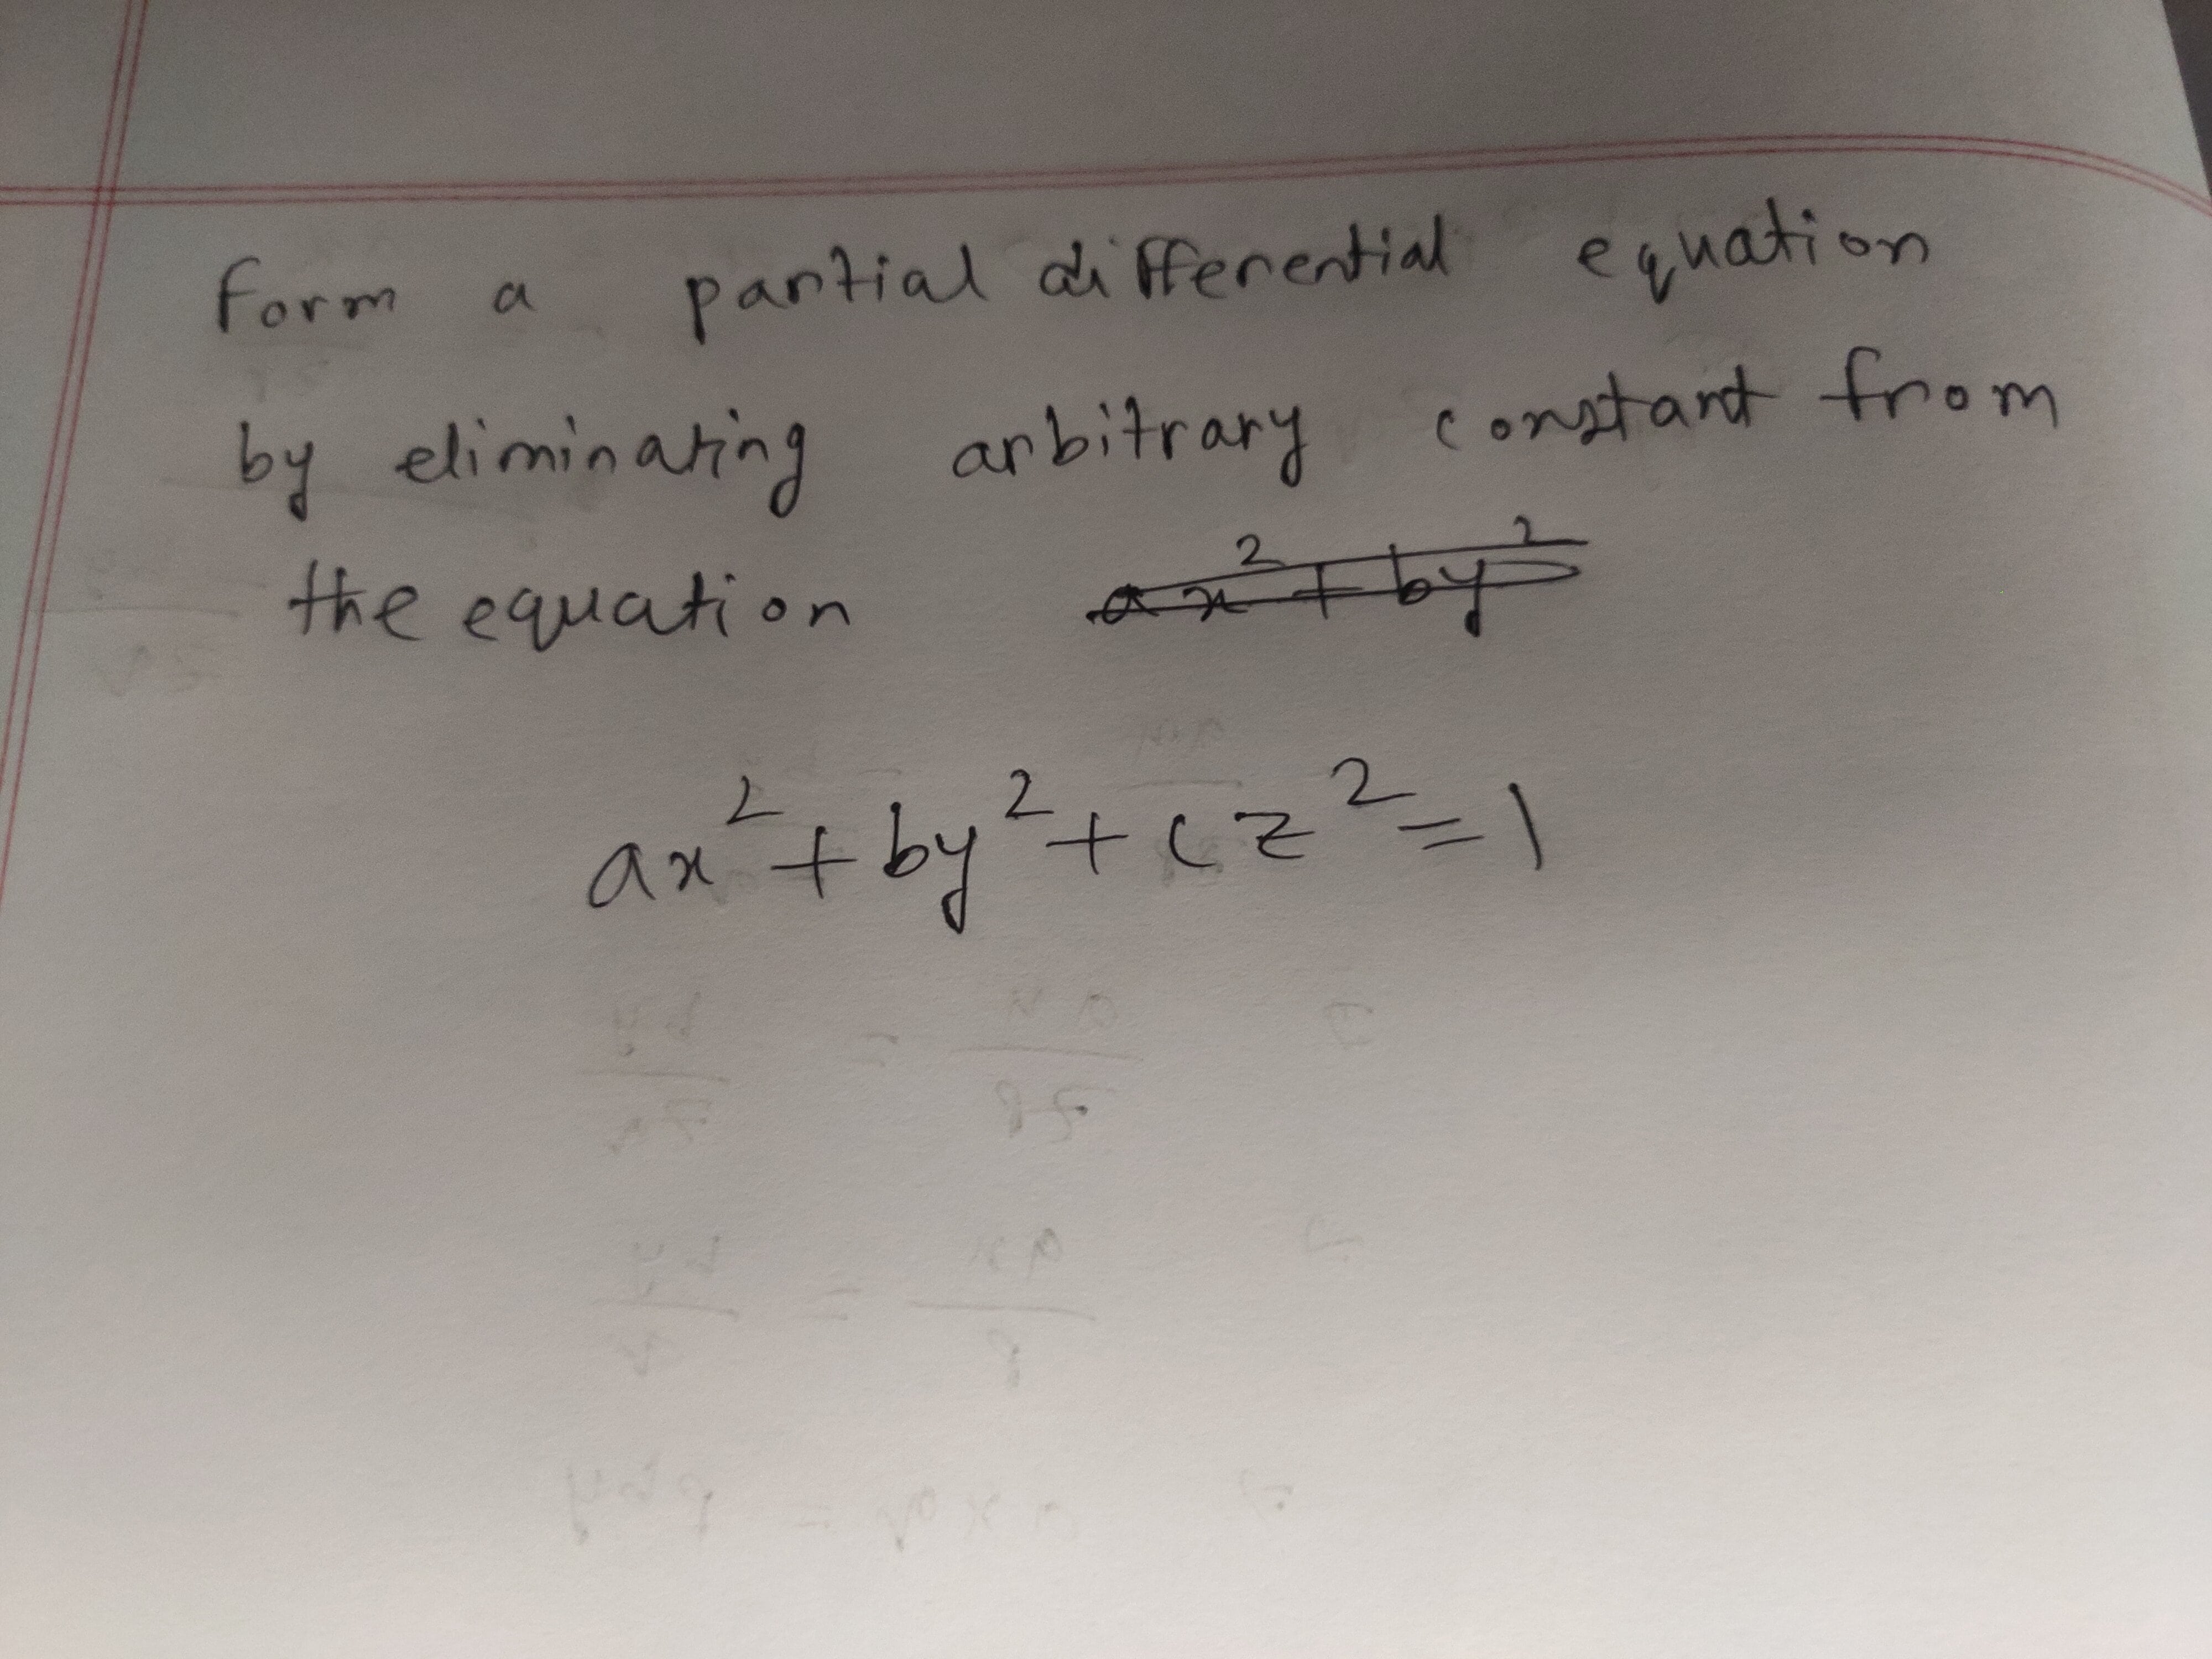 Form a partial differential equation
by eliminating arbitrary constant from
the equation ax² + by²
ax² + by² + cz² = 1